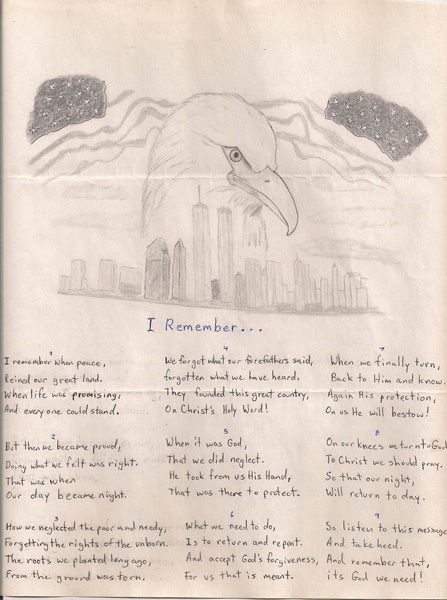 I Remember...
1
I remember when peace,
Reined our great land.
When life was promising,
And every one could stand.
2
But then we became proud,
Doing what we felt was right.
That was when
Our day became night.
3
How we neglected the poor and needy,
Forgetting the rights of the unborn.
The roots we planted long ago,
From the ground was torn.
4
We forgot what our forefathers said,
forgotten what we have heard.
They founded this great country,
On Christ's Holy Word!
5
When it was God,
That we did neglect.
He took from us His Hand,
That was there to protect.
6
What we need to do,
Is to return and repent.
And accept God's forgiveness,
For us that is meant.
7
When we finally turn,
Back to Him and know.
Again His protection,
On us He will bestow!
8
On our knees we return to God
To Christ we should pray.
So that our night,
Will return to day.
9
So listen to this message
And take heed.
And remember that,
its God we need!